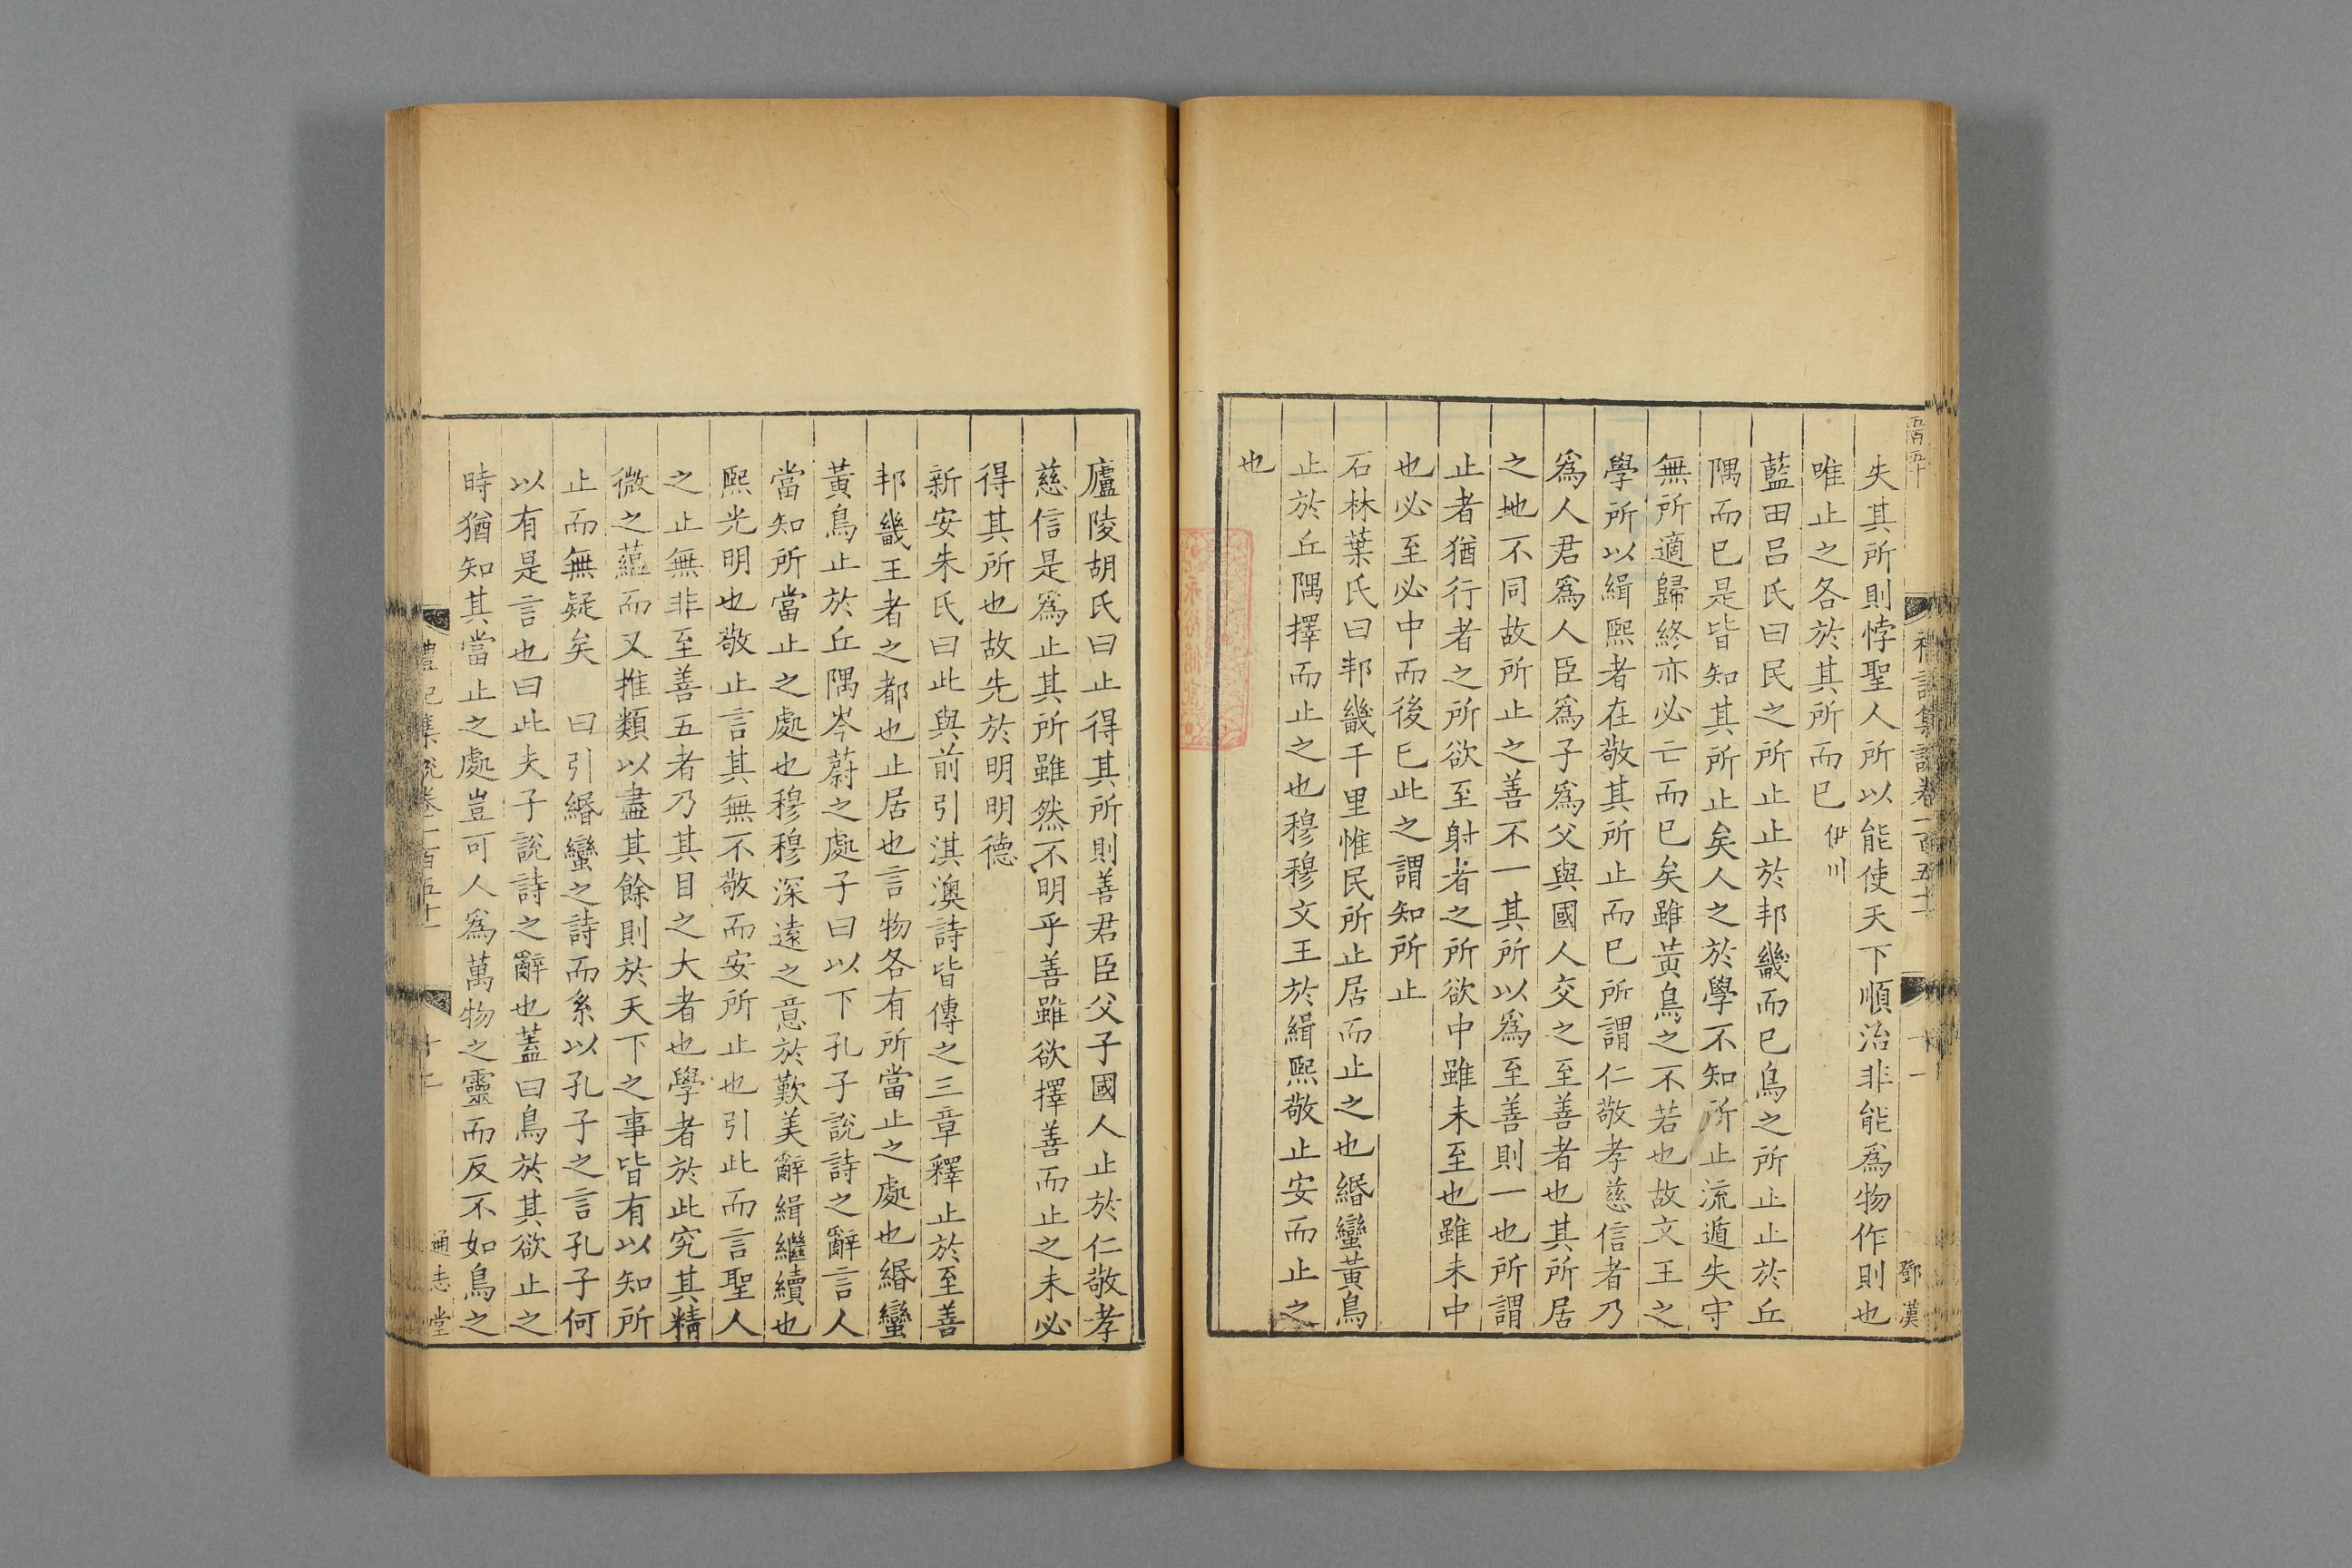 失其所則悖聖人所以能使天下順治非能爲物作則也
唯止之各於其所而已伊川
藍田呂氏曰民之所止止於邦畿而已鳥之所止止於丘
隅而已是皆知其所止矣人之於學不知所止流遁失守
無所適歸終亦必亡而已矣雖黃鳥之不若也故文王之
學所以緝熙者在敬其所止而已所謂仁敬孝慈信者乃
爲人君爲人臣爲子爲父與國人交之至善者也其所居
之地不同故所止之善不一其所以爲至善則一也所謂
止者猶行者之所欲至射者之所欲中雖未至也雖未中
也必至必中而後已此之謂知所止
石林葉氏曰邦畿千里惟民所止居而止之也緡蠻黃鳥
止於丘隅擇而止之也穆穆文王於緝熙敬止安而止之
也
鄧漢
廬陵胡氏曰止得其所則善君臣父子國人止於仁敬孝
慈信是爲止其所雖然不明乎善雖欲擇善而止之未必
得其所也故先於明明德
新安朱氏曰此與前引淇澳詩皆傳之三章釋止於至善
邦畿王者之都也止居也言物各有所當止之處也緡蠻
黃鳥止於丘隅岑蔚之處子曰以下孔子說詩之辭言人
當知所當止之處也穆穆深遠之意於歎美辭緝繼續也
熙光明也敬止言其無不敬而安所止也引此而言聖人
之止無非至善五者乃其目之大者也學者於此究其精
微之蘊而又推類以盡其餘則於天下之事皆有以知所
止而無疑矣 曰引緡蠻之詩而系以孔子之言孔子何
以有是言也曰此夫子說詩之辭也蓋曰鳥於其欲止之
時猶知其當止之處豈可人爲萬物之靈而反不如鳥之
禮記集說卷一百五十
十二
通志堂